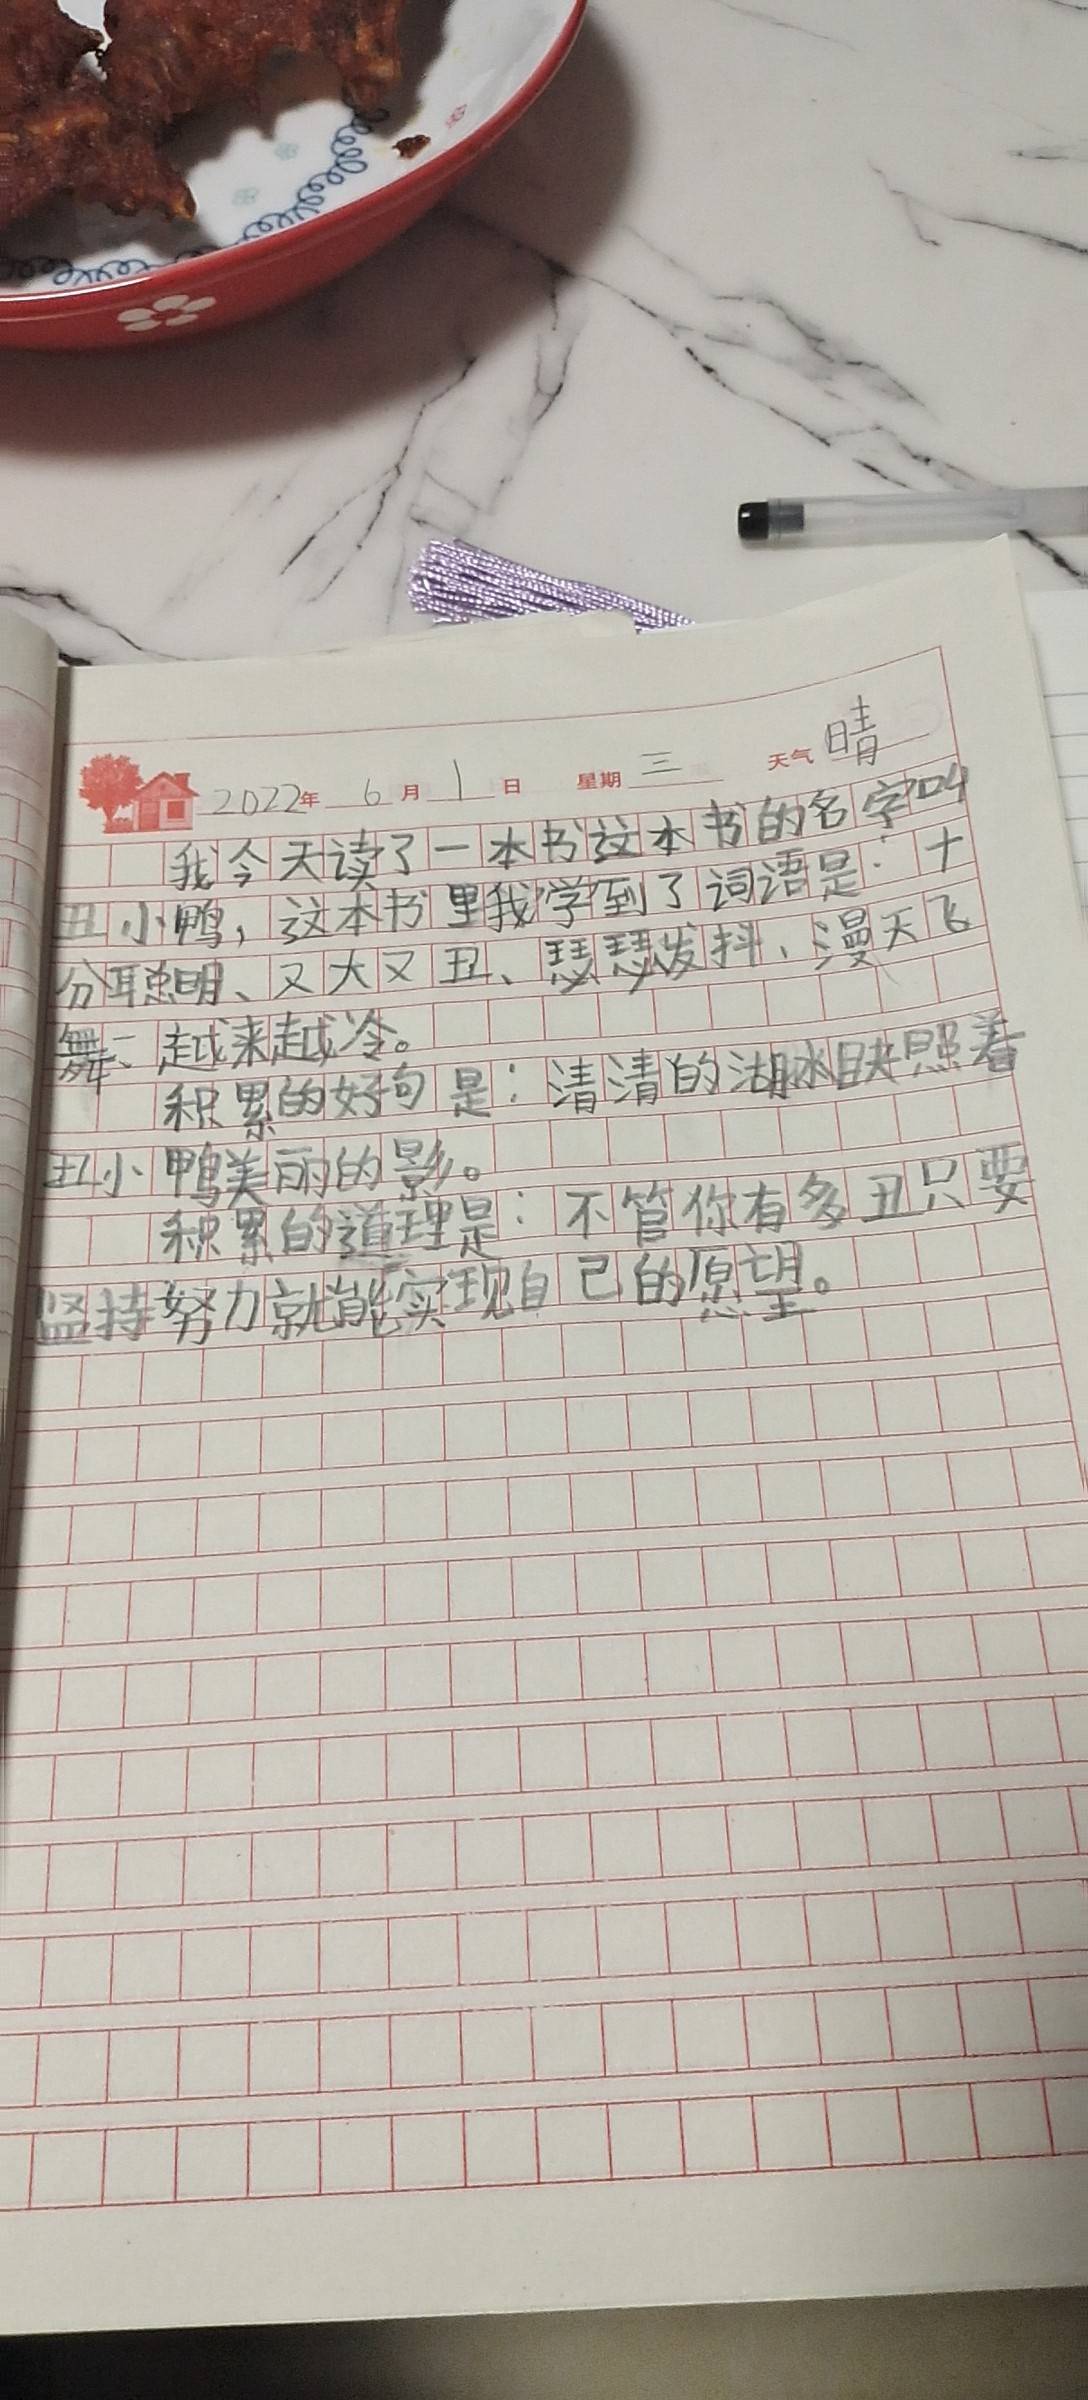 2022年 6月 1日 星期 三 天气 晴
我今天读了一本书这本书的名字叫
丑小鸭，这本书里我学到了词语是：十
分聪明、又大又丑、瑟瑟发抖、漫天飞
舞、越来越冷。
积累的好句是：清清的湖冰映照着
丑小鸭美丽的影。
积累的道理是：不管你有多丑只要
坚持努力就能实现自己的愿望。